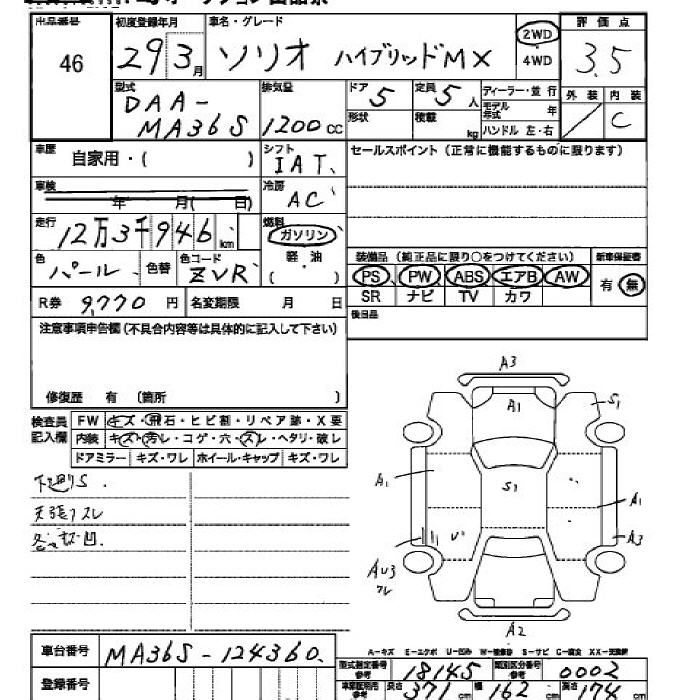 出品番号 46
初度登録年月 29 3月
車名・グレード ソリオ ハイブリッドMX
2WD
4WD
評価点 3.5
外装 内装
/ C
型式 DAA-
MA36S
排気量 1200cc
ドア 5
定員 5人
形状
積載 kg
ディーラー・並行
モデル年式 年
ハンドル 左・右
車歴 自家用・( )
シフト IAT
セールスポイント(正常に機能するものに限ります)
車検 年 月( 日)
冷房 AC
走行 12万3千946km
燃料 ガソリン
軽油
( )
色 パール 色替
色コード ZVR
装備品(純正品に限り○をつけてください)
新車保証書
PS PW ABS エアB AW
有・無
SR ナビ TV カワ
R券 9,770円
名変期限 月 日
後日品
注意事項申告欄(不具合内容等は具体的に記入して下さい)
修復歴 有(箇所 )
検査員記入欄
FW キズ・飛石・ヒビ割・リペア跡・X要
内装 キズ・汚レ・コゲ・穴・スレ・ヘタリ・破レ
ドアミラー キズ・ワレ ホイール・キャップ キズ・ワレ
下廻りS.
天張リスレ
A3
A1
S1
A1
S1
A1
U1
A3
AU3
ワレ
A2
A-キズ E-エクボ U-凹み W-補修跡 S-サビ C-腐食 XX-交換跡
車台番号 MA36S-124360
型式指定番号 参考 18145
類別区分番号 参考 0002
登録番号
長さ 371cm 幅 162cm 高さ 174cm